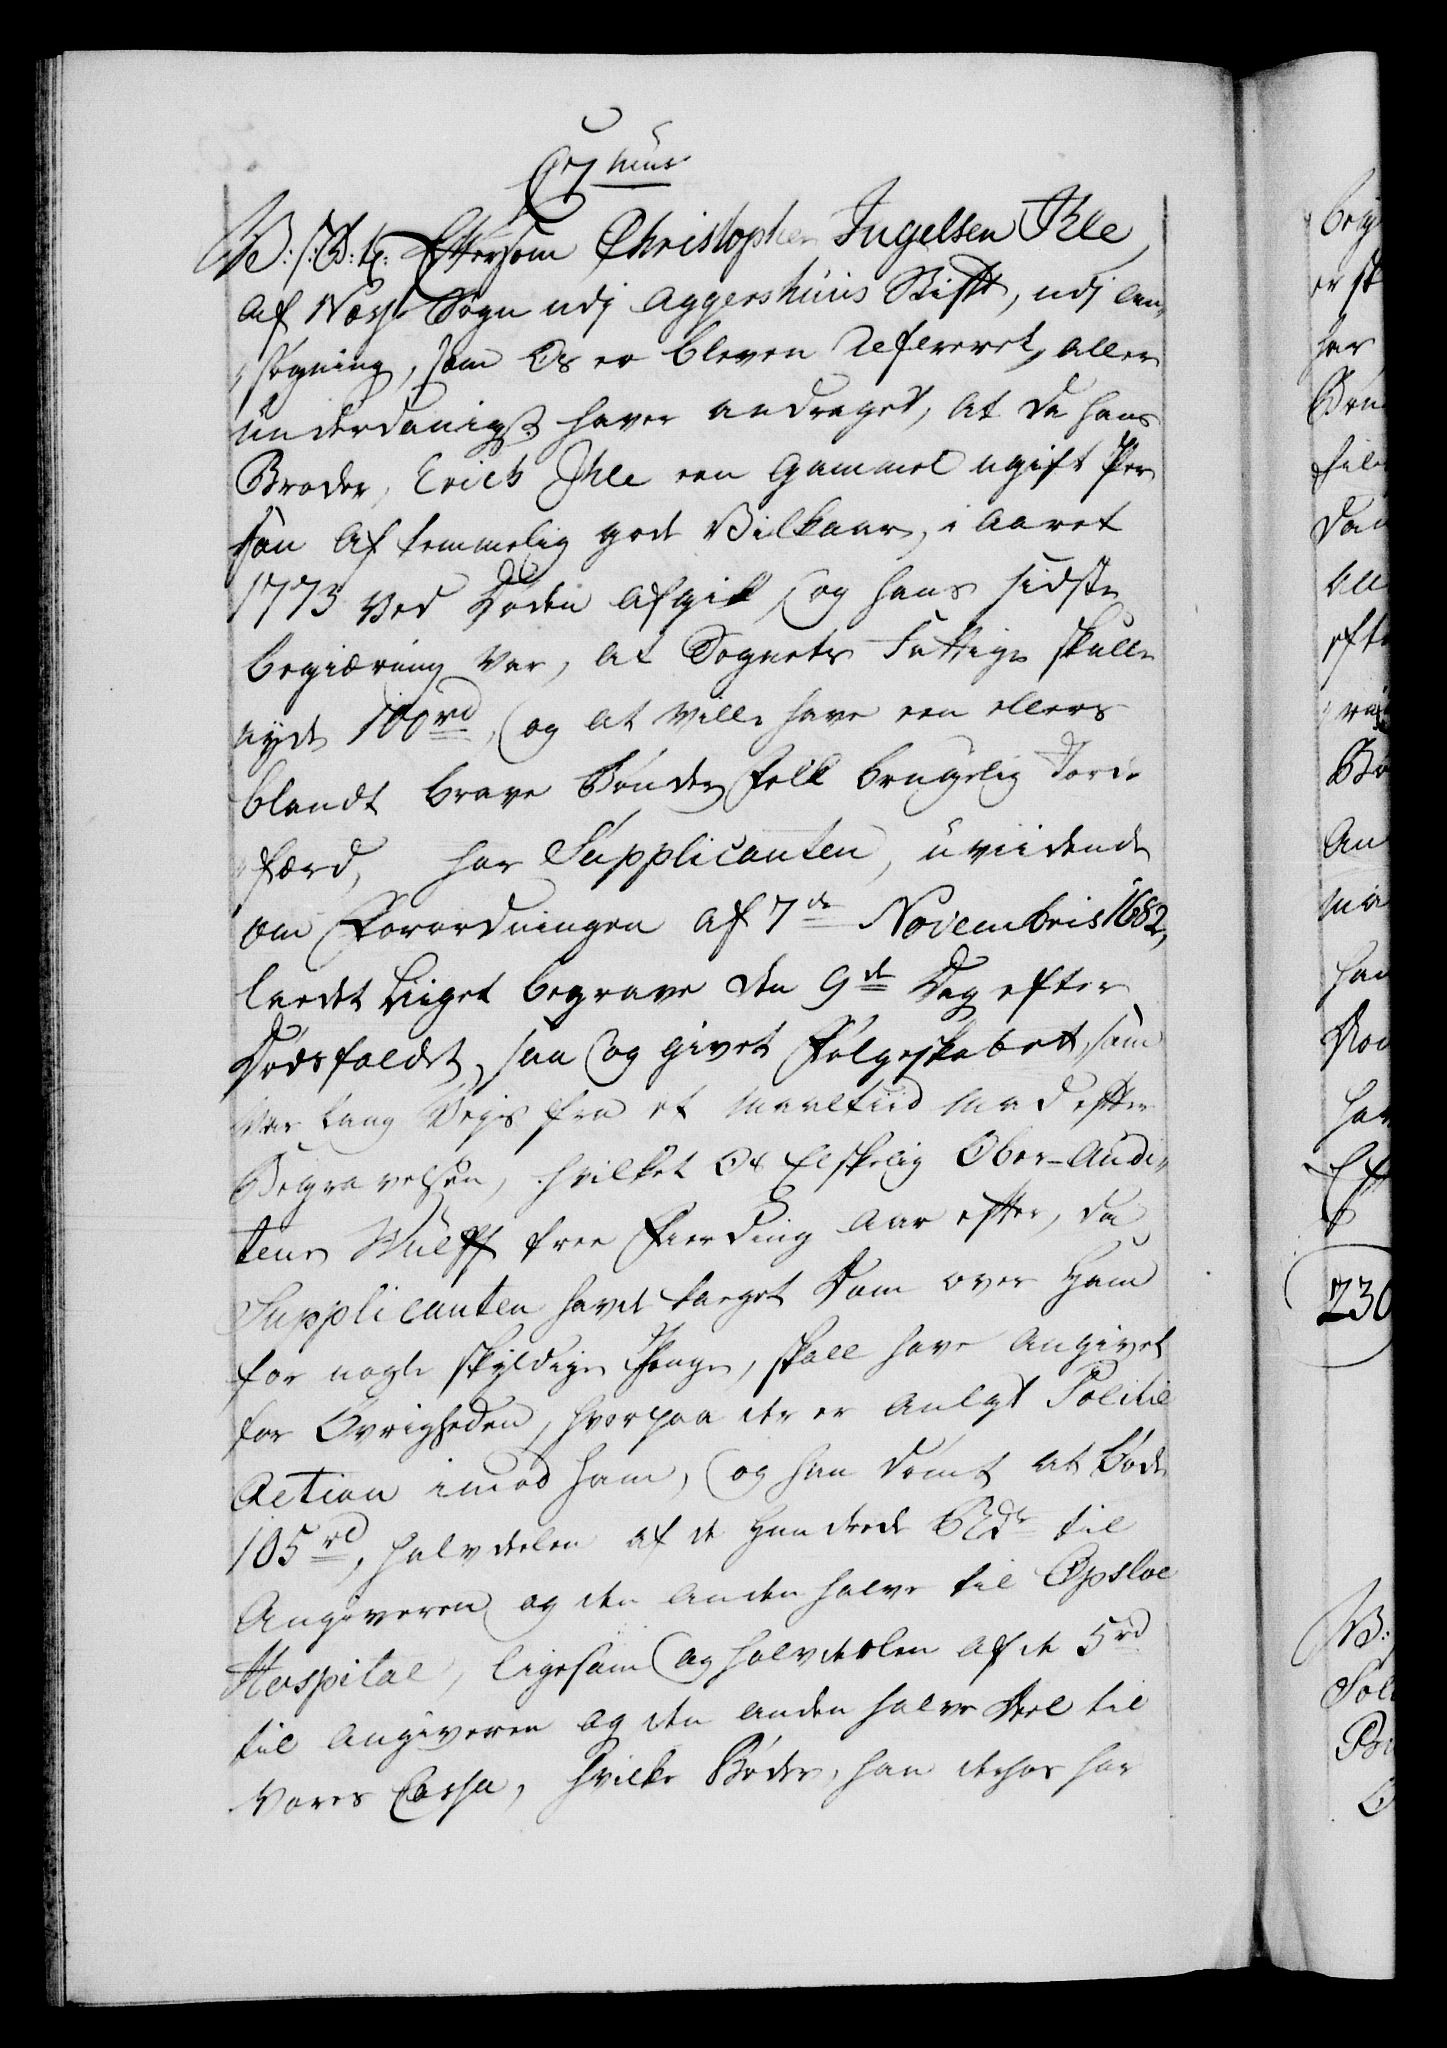 C 7 mus
V: G: t: Eftersom Christopher Ingelsen Ihle
af Næss Sogn udj Aggershuus Stift, udj an„
„søgning, som Os er bleven Refereret, aller
underdanigst haver andraget, at da hans
Broder, Erich Ihle een gammel ugift Per
son af temmelig gode Vilkaar, i Aaret
1773 ved Døden afgik, og hans sidste
begiæring var, at Sognets Fattige skulle
nyde 100 rd, og at ville have een ellers
blandt brave Bønder folk brugelig Jorde
„færd, har Supplicanten, uviidende
om Forordningen af 7de Novembris 1682,
ladet Liiget begrave den 9de Dag efter
Dødsfaldet, saa og givet Følgeskabet, som
var lang Vejs fra et Maaltiid Mad efter
Begravelsen, hvilket Os Elskelig Ober-Audi„
teur Wulff tree Fierding Aar efter, da
Supplicanten havde taget Dom over Ham
for nogle skyldige Penge, skall have angivet
for Øvrigheden, hvorpaa der er anlagt Politie
Action imod ham, og han dømt at bøde
105 rd, halvdelen af de Hundrede Rdr til
Angiveren og den anden halve til Opsloe
Hospital, ligesom og halvdeelen af de 5 rd
til Angiveren og den anden halve Deel til
Vores Cassa, hvilke Bøder, han derhos har
230